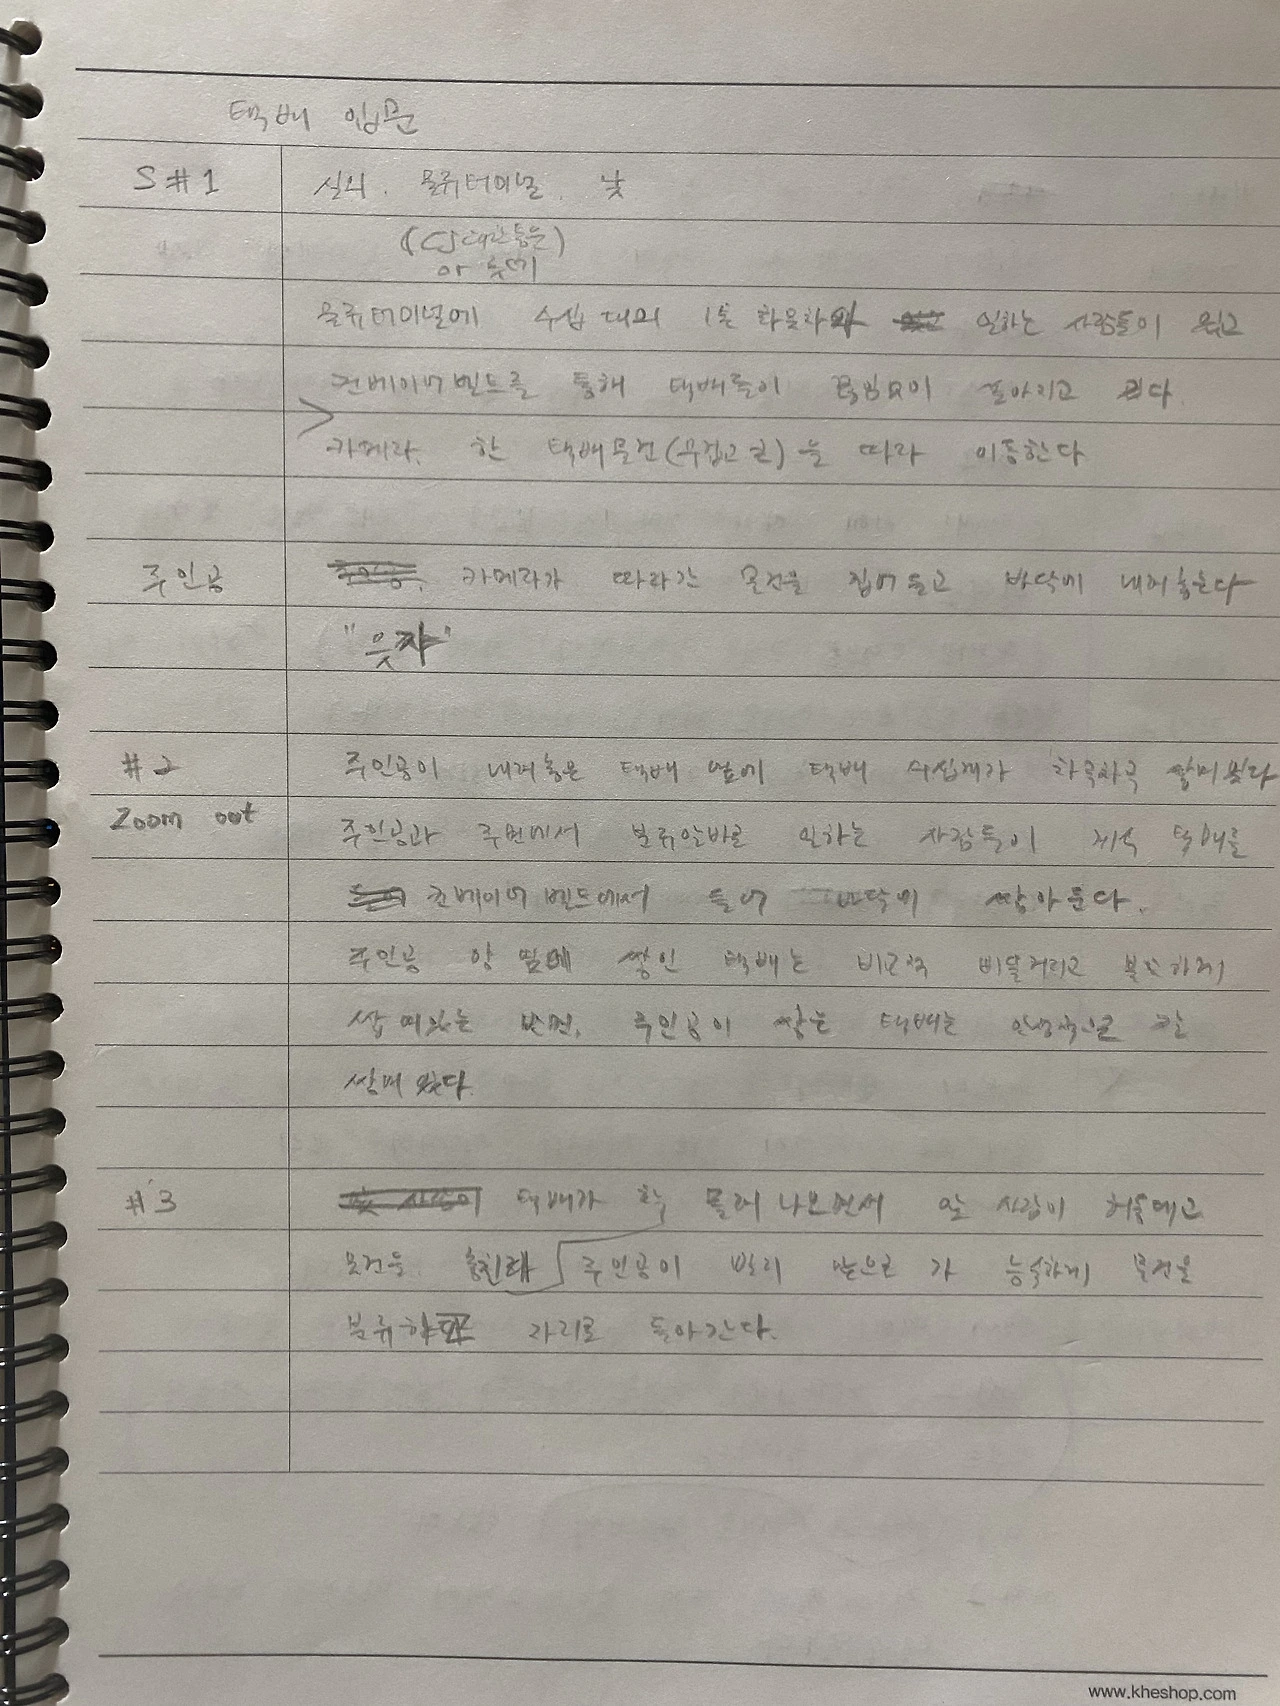 택배 입문
S#1 실외. 물류터미널. 낮
(CJ대한통운)
or 롯데
물류터미널에 수십 대의 1톤 화물차와 일하는 사람들이 있고
컨베이어벨트를 통해 택배들이 끊임없이 쏟아지고 있다
카메라. 한 택배물건(무겁고 큰)을 따라 이동한다
주인공 카메라가 따라간 물건을 집어 들고 바닥에 내려놓는다
"읏쟈"
#2 주인공이 내려놓은 택배 옆에 택배 수십개가 차곡차곡 쌓여있다
Zoom out 주인공과 주변에서 분류알바로 일하는 사람들이 계속 택배를
컨베이어 벨트에서 들어 바닥에 쌓아둔다.
주인공 앞 옆에 쌓인 택배는 비교적 비틀거리고 불안하게
쌓여있는 반면, 주인공이 쌓는 택배는 안정적으로 잘
쌓여 있다.
#3 택배가 확 몰려 나오면서 앞 사람이 허둥대고
물건을 놓친다 주인공이 빨리 앞으로 가 능숙하게 물건을
분류하고 자리로 돌아간다.
www.kheshop.com